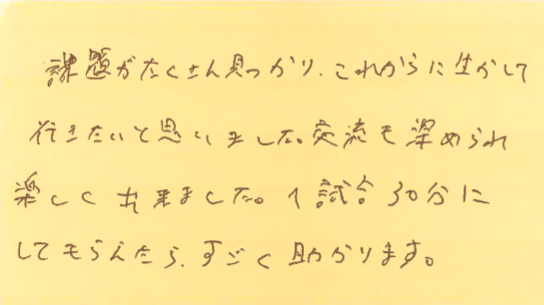 課題がたくさん見つかり、これからに生かして
行きたいと思いました。交流も深められ
楽しく出来ました。1試合30分に
してもらえたら、すごく助かります。